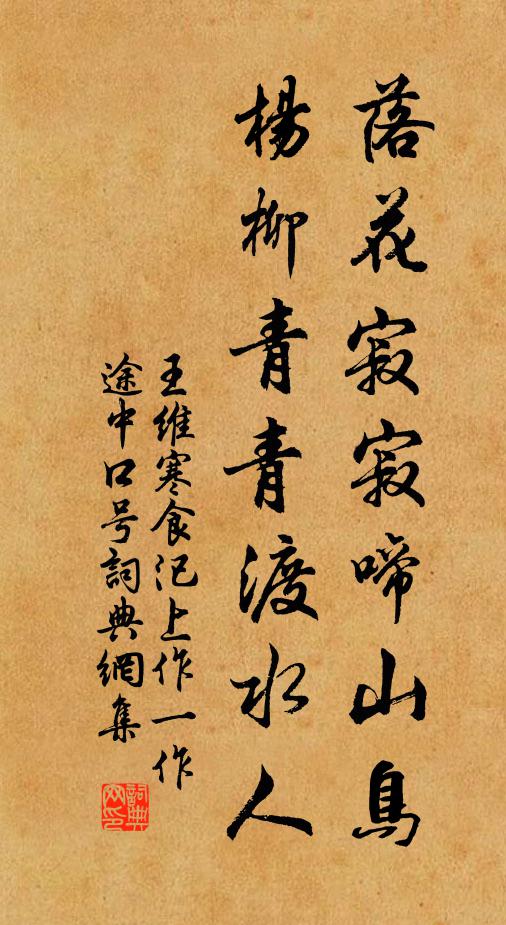 落花寂寂啼山鳥
楊柳青青渡水人
王維寒食汜上作一作
途中口号詞典網集
詞典網印